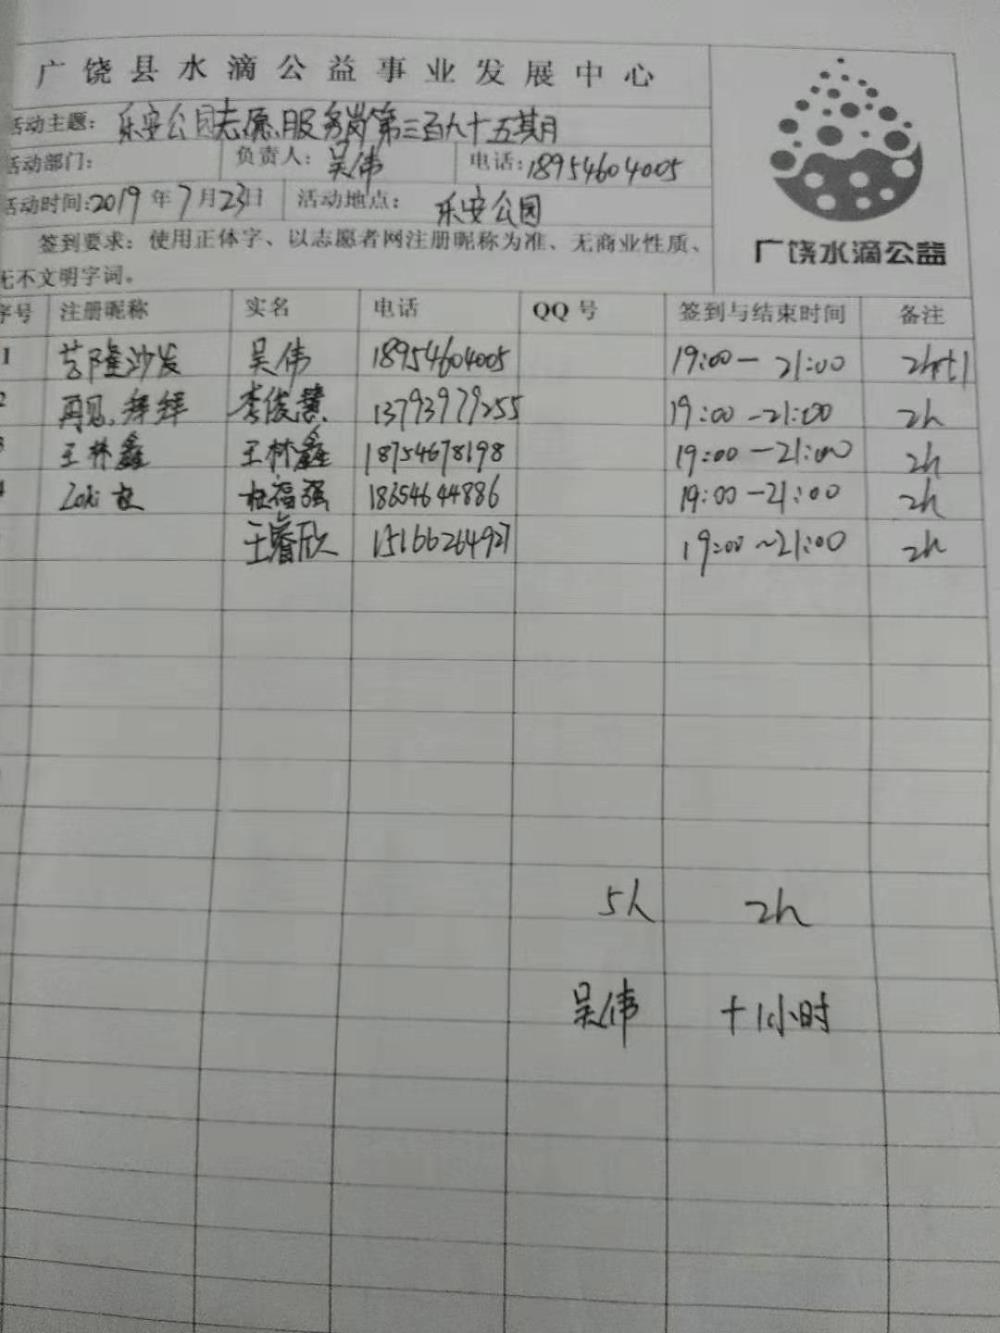 广饶县水滴公益事业发展中心
活动主题：乐安公园志愿服务岗第三百九十五期
活动部门： 负责人：吴伟 电话：18954604005
活动时间：2019年7月23日 活动地点：乐安公园
签到要求：使用正体字、以志愿者网注册昵称为准、无商业性质、
无不文明字词。
广饶水滴公益
序号 注册昵称 实名 电话 QQ号 签到与结束时间 备注
1 芸隆沙发 吴伟 18954604005 19:00-21:00 2h+1
2 再见.拜拜 李俊慧 13793979255 19:00-21:00 2h
3 王林鑫 王林鑫 18754678198 19:00-21:00 2h
4 福强 18654644886 19:00-21:00 2h
王睿欣 15166264927 19:00~21:00 2h
5人 2h
吴伟 +1小时